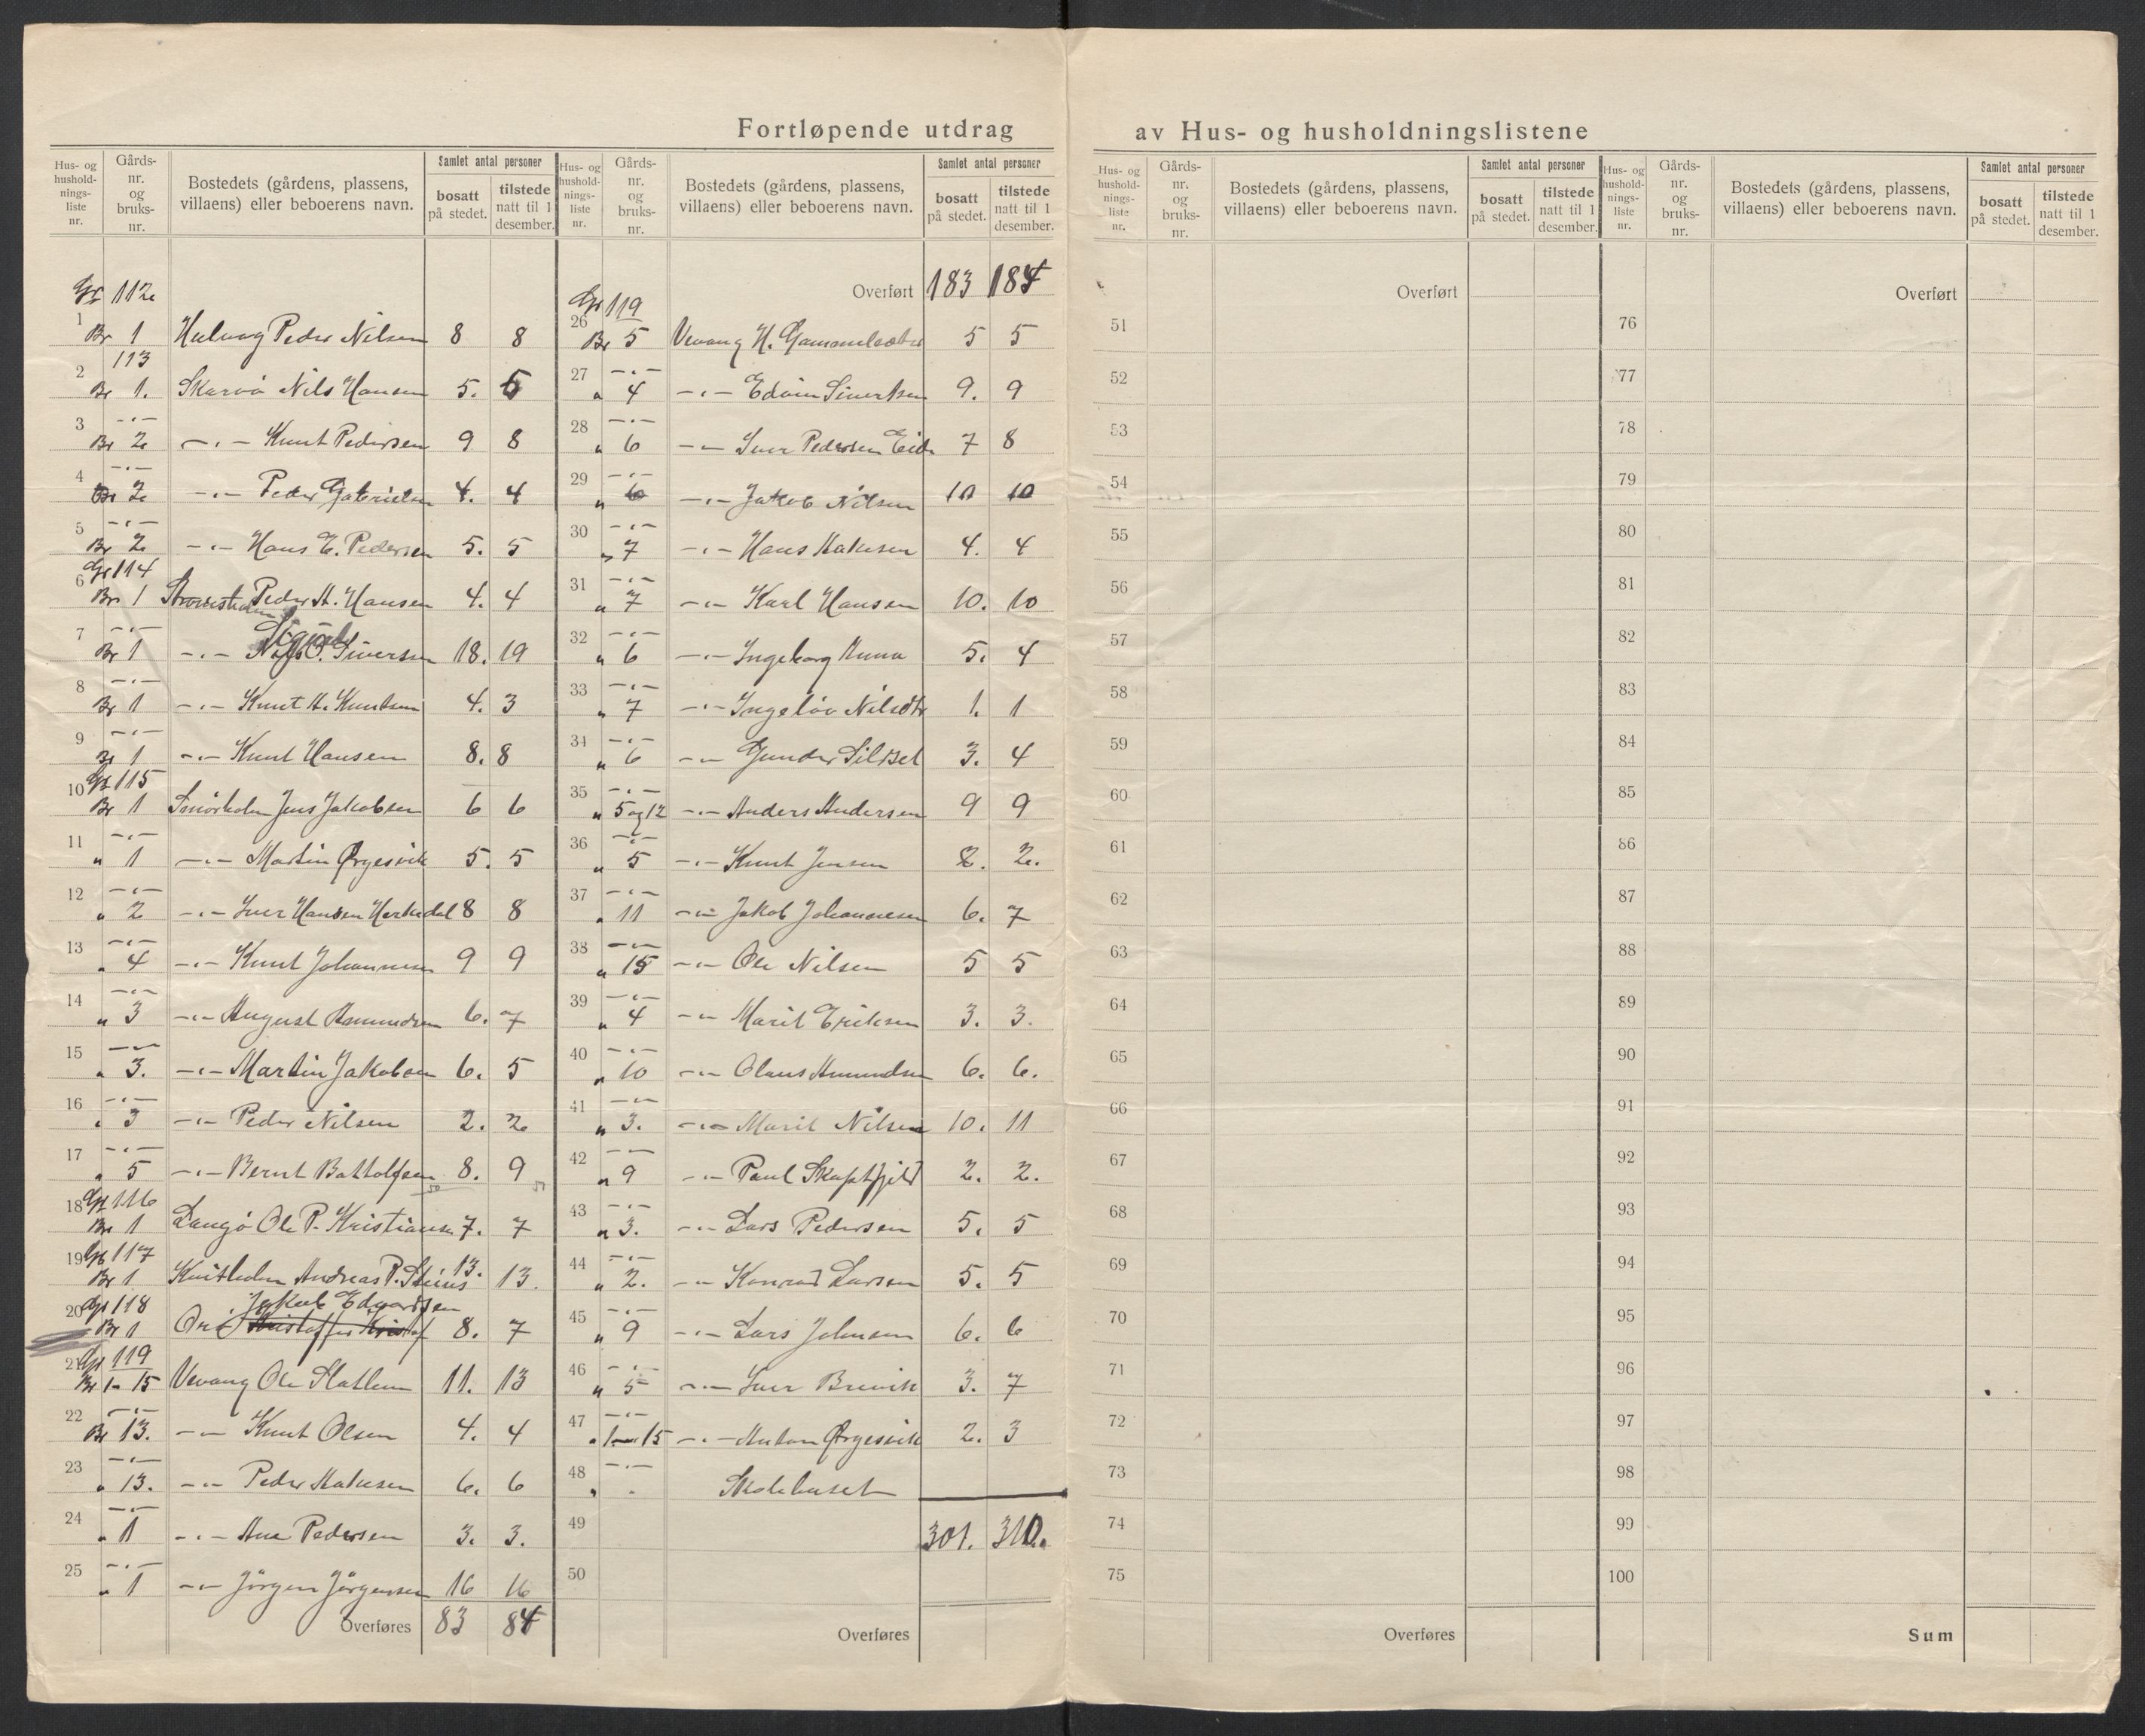 Fortløpende utdrag av Hus- og husholdningslistene
Hus- og hushold- nings- liste nr. Gårds- nr. og bruks- nr. Bostedets (gårdens, plassens, villaens) eller beboerens navn. Samlet antal personer bosatt på stedet. tilstede natt til 1 desember.
Gr 112
1 Br 1 Peder Nilsen 8 8
113
2 Br 1. Skarvö Nils Hansen 5. 5
3 -"- Br 2 -"- Knut Pedersen 9 8
4 -"- Br 2 -"- Peder Gabrielsen 4. 4
5 -"- Br 2 -"- Hans E. Pedersen 5. 5
Gr 114
6 Br 1 Peder H. Hansen 4. 4
7 -"- Br 1 -"- Siversen 18. 19
8 -"- Br 1 -"- Knut H. Knutsen 4. 3
9 -"- Br 1 -"- Knut Hansen 8. 8
Gr 115
10 Br 1 Smörholm Jens Jakobsen 6 6
11 -"- " 1 -"- Martin Ørgesvik 5. 5
12 -"- " 2 -"- Iver Hansen 8 8
13 -"- " 4 -"- Knut Johannesen 9 9
14 -"- " 3 -"- August Asmundsen 6. 7
15 -"- " 3. -"- Martin Jakobsen 6. 5
16 -"- " 3 -"- Peder Nilsen 2. 2
17 -"- " 5 -"- Bernt Bottolfsen 8. 9
Gr 116
18 Br 1 Langö Ole P. Kristiansen 7. 7
Gr 117
19 Br 1 Kvitholm Andreas P. 13. 13.
Gr 118 Jakob Edvardsen
20 Br 1 Kristoffer 8. 7
Gr 119
21 Br 1-15 Vevang Ole Slatlem 11. 13
22 -"- Br 13. -"- Knut Olsen 4. 4
23 -"- " 13. -"- Peder Hakesen 6. 6
24 -"- " 1 -"- Ane Pedersen 3. 3.
25 -"- " 1 -"- Jörgen Jörgensen 16 16
Overføres 83 84
Hus- og hushold- nings- liste nr. Gårds- nr. og bruks- nr. Bostedets (gårdens, plassens, villaens) eller beboerens navn. Samlet antal personer bosatt på stedet. tilstede natt til 1 desember.
Overført 183 184
Gr 119
26 Br 5 Vevang H. 5 5
27 -"- " 4 -"- Edvin Sivertsen 9. 9
28 -"- " 6 -"- Iver Pedersen Eide 7 8
29 -"- " 6 -"- Jakob Nilsen 10 10
30 -"- " 7 -"- Hans Hakesen 4. 4
31 -"- " 7 -"- Karl Hansen 10. 10
32 -"- " 6 -"- Ingeborg Anna 5. 4
33 -"- " 7 -"- Nilsdtr 1. 1
34 -"- " 6 -"- Gunder Silset 3. 4
35 -"- " 5 og 12 -"- Anders Andersen 9 9
36 -"- " 5 -"- Knut Jensen 2. 2.
37 -"- " 11 -"- Jakob Johannesen 6. 7
38 -"- " 15 -"- Ole Nilsen 5 5
39 -"- " 4 -"- Marit Eriksen 3. 3.
40 -"- " 10 -"- Olaus Amundsen 6. 6.
41 -"- " 3. -"- Marit Nilsen 10. 11
42 -"- " 9 -"- Paul 2. 2.
43 -"- " 3. -"- Lars Pedersen 5. 5
44 -"- " 2. -"- Konrad Larsen 5. 5
45 -"- " 9 -"- Lars Johnsen 6. 6
46 -"- " 5 -"- Iver Brevik 3. 7
47 -"- " 1-15 -"- Anton Ørgesvik 2. 3
48 -"- " Skolehuset
49 301. 310.
50
Overføres
Hus- og hushold- nings- liste nr. Gårds- nr. og bruks- nr. Bostedets (gårdens, plassens, villaens) eller beboerens navn. Samlet antal personer bosatt på stedet. tilstede natt til 1 desember.
Overført
51
52
53
54
55
56
57
58
59
60
61
62
63
64
65
66
67
68
69
70
71
72
73
74
75
Overføres
Hus- og hushold- nings- liste nr. Gårds- nr. og bruks- nr. Bostedets (gårdens, plassens, villaens) eller beboerens navn. Samlet antal personer bosatt på stedet. tilstede natt til 1 desember.
Overført
76
77
78
79
80
81
82
83
84
85
86
87
88
89
90
91
92
93
94
95
96
97
98
99
100
Sum